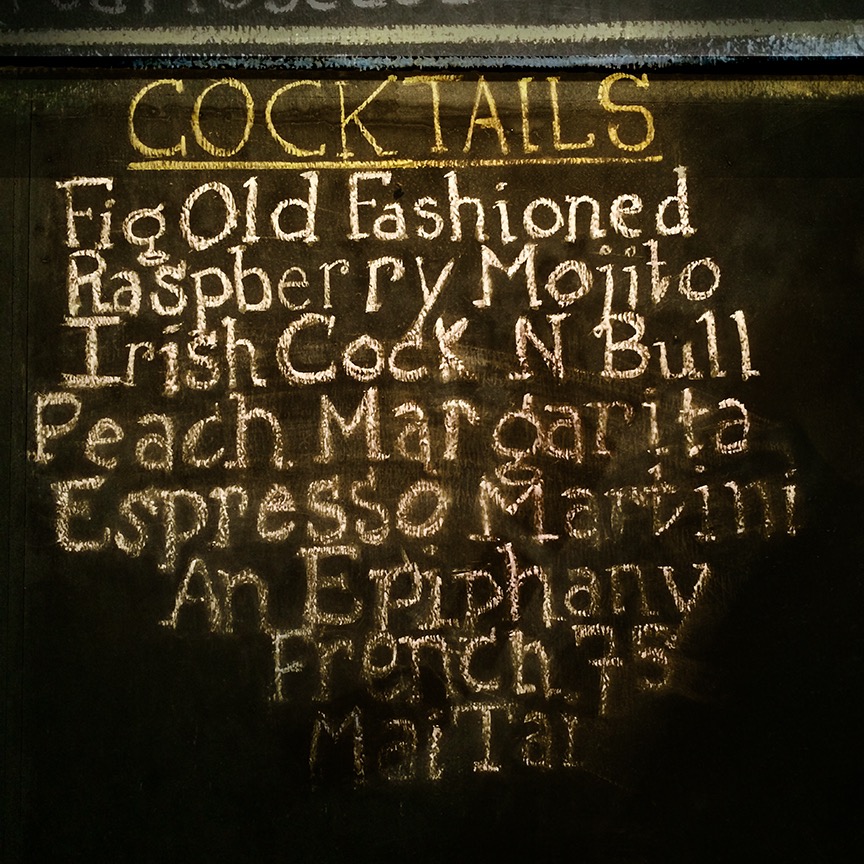 COCKTAILS
Fig Old Fashioned
Raspberry Mojito
Irish Cock N Bull
Peach Margarita
Espresso Martini
An Epiphany
French 75
Mai Tai